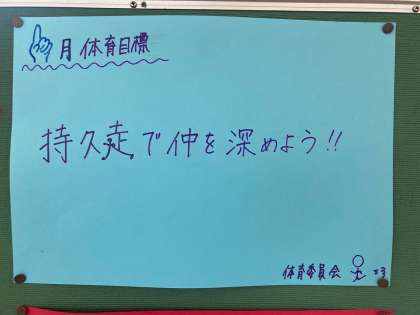 月 体育目標
持久走で仲を深めよう!!
体育委員会